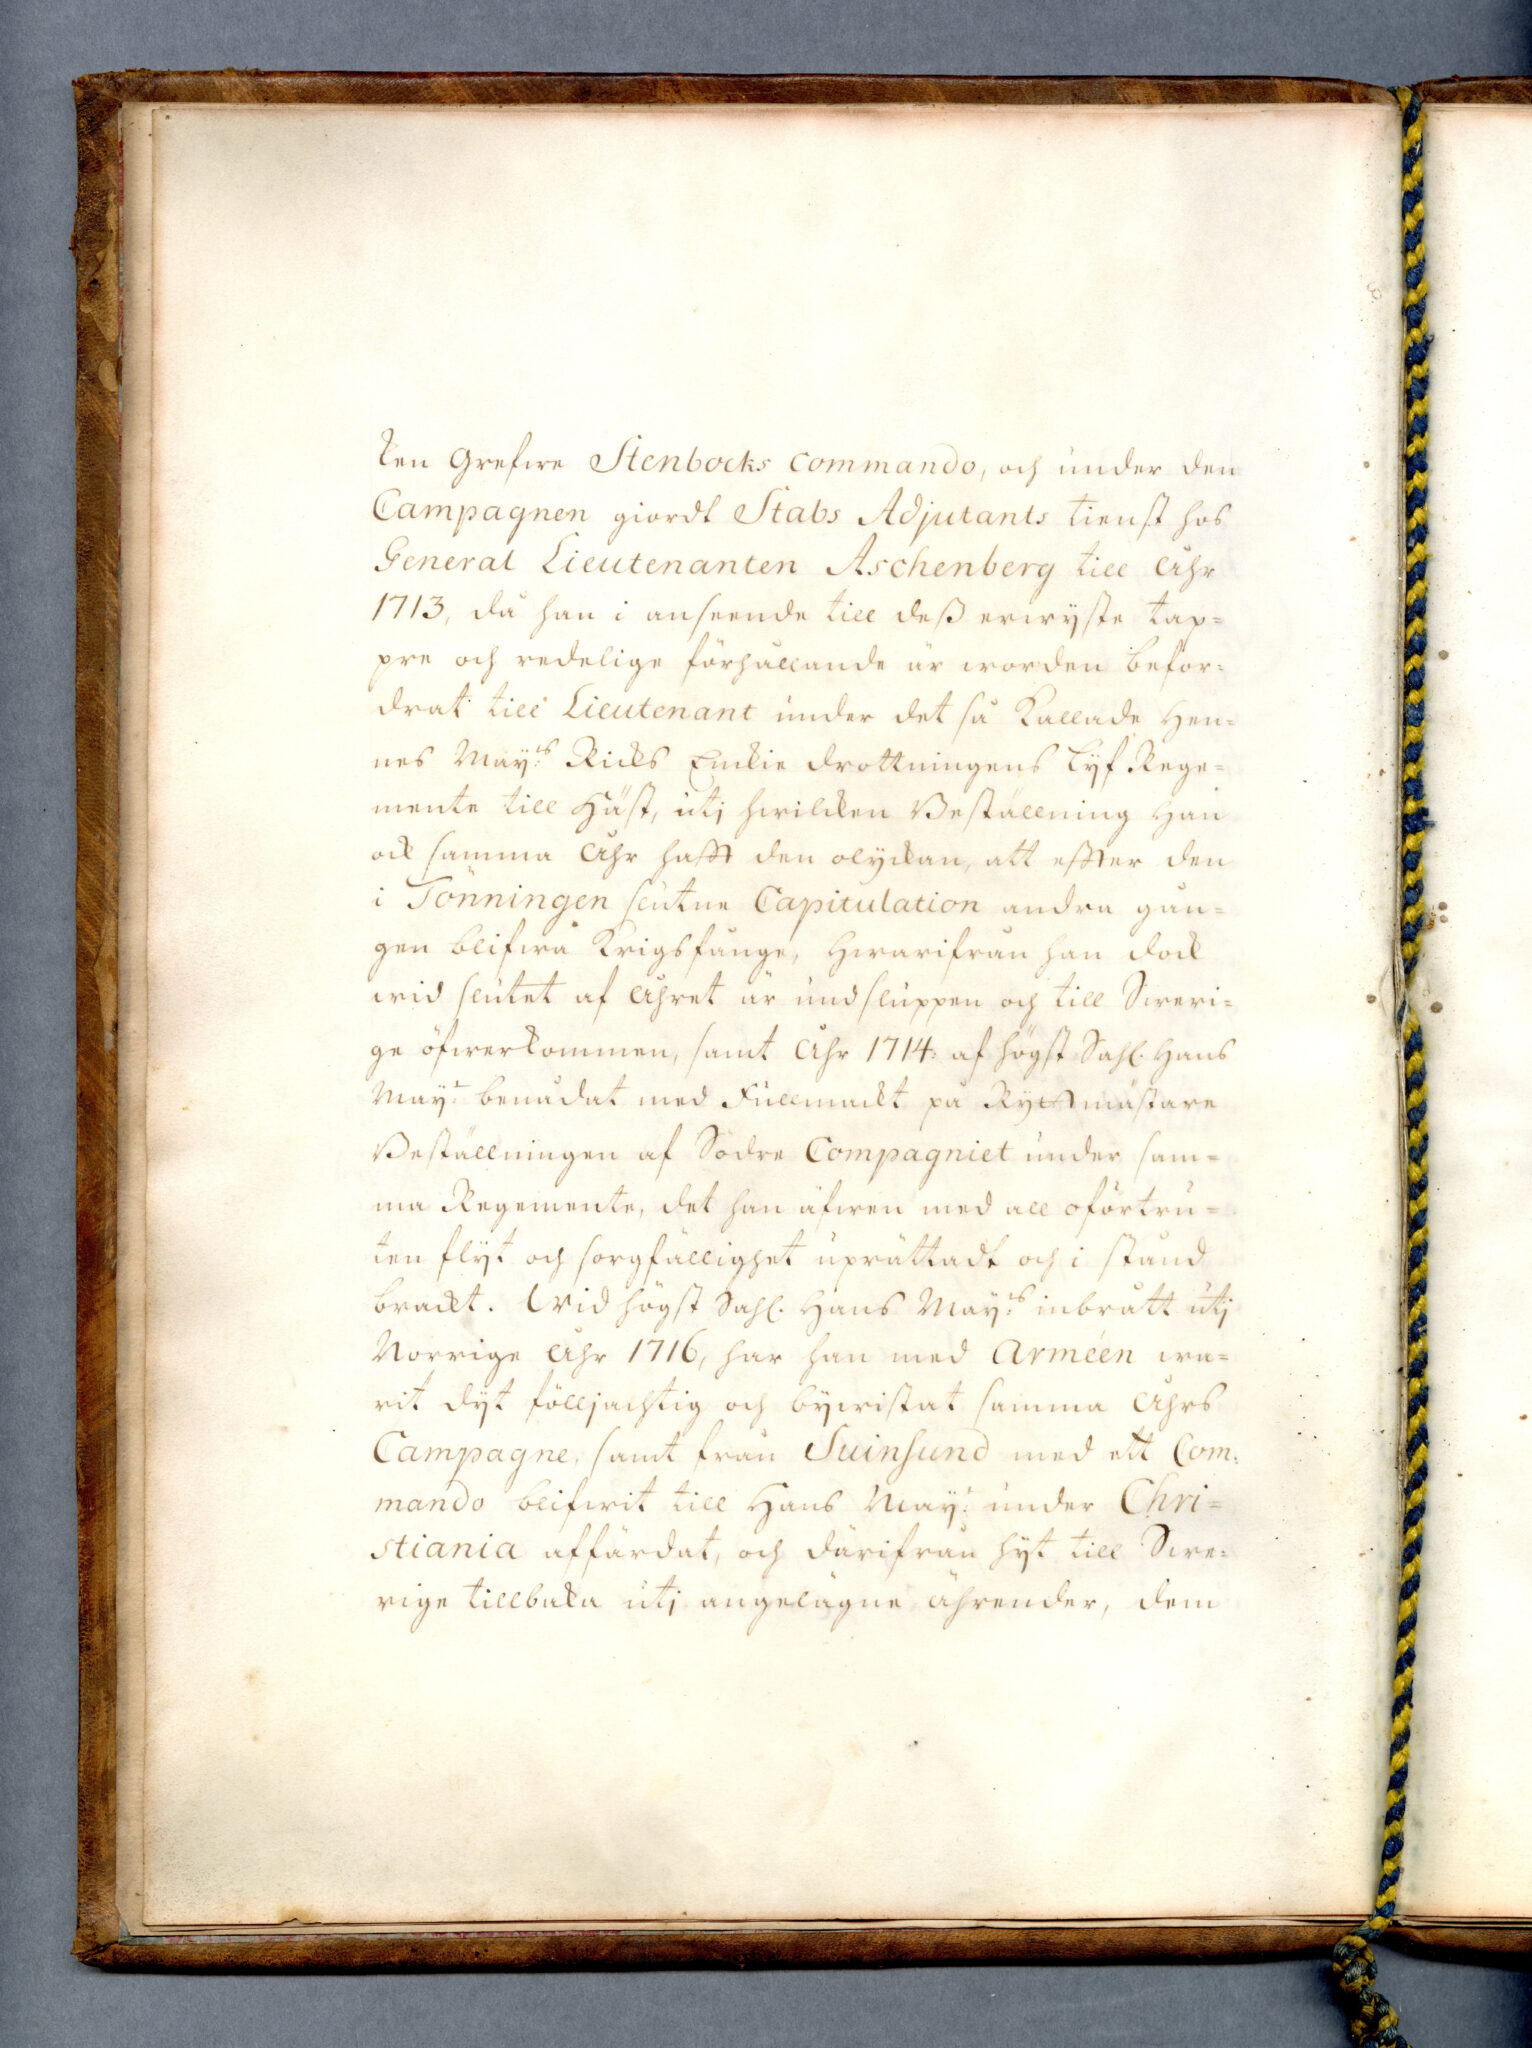 ken Grefwe Stenbocks Commando, och under den
Campagnen giordt Stabs Adjutants tienst hos
General Lieutenanten Aschenberg till Åhr
1713, då han i anseende till deß erwyste tap=
pre och redelige förhållande är worden befor=
drat till Lieutenant under det så kallade Hen=
nes May:ts Ricks Enckie drottningens Lyf Rege=
mente till Häst, utj hwilcken Beställning Han
ock samma Åhr hafft den olyckan, att effter den
i Tönningen slutne Capitulation andra gån=
gen blifwa Krigsfånge, hwarifrån han dock
wid slutet af Åhret är undsluppen och till Sweri=
ge öfwerkommen, samt Åhr 1714: af högst Sahl. Hans
May:t benådat med Fullmackt på Ryttmästare
Beställningen af Södre Compagniet under sam=
ma Regemente, det han äfwen med all oförtru=
ten flyt och sorgfällighet uprättadt och i stånd
brackt. Wid högst Sahl. Hans May:ts inbrått utj
Norrige Åhr 1716, har han med Arméen wa=
rit dyt fölljachtig och bywistat samma Åhrs
Campagne, samt från Suinsund med ett Com:
mando blifwit till Hans May:t under Chri=
stiania affärdat, och därifrån hyt till Swe=
rige tillbaka utj angelägne ährender, dem